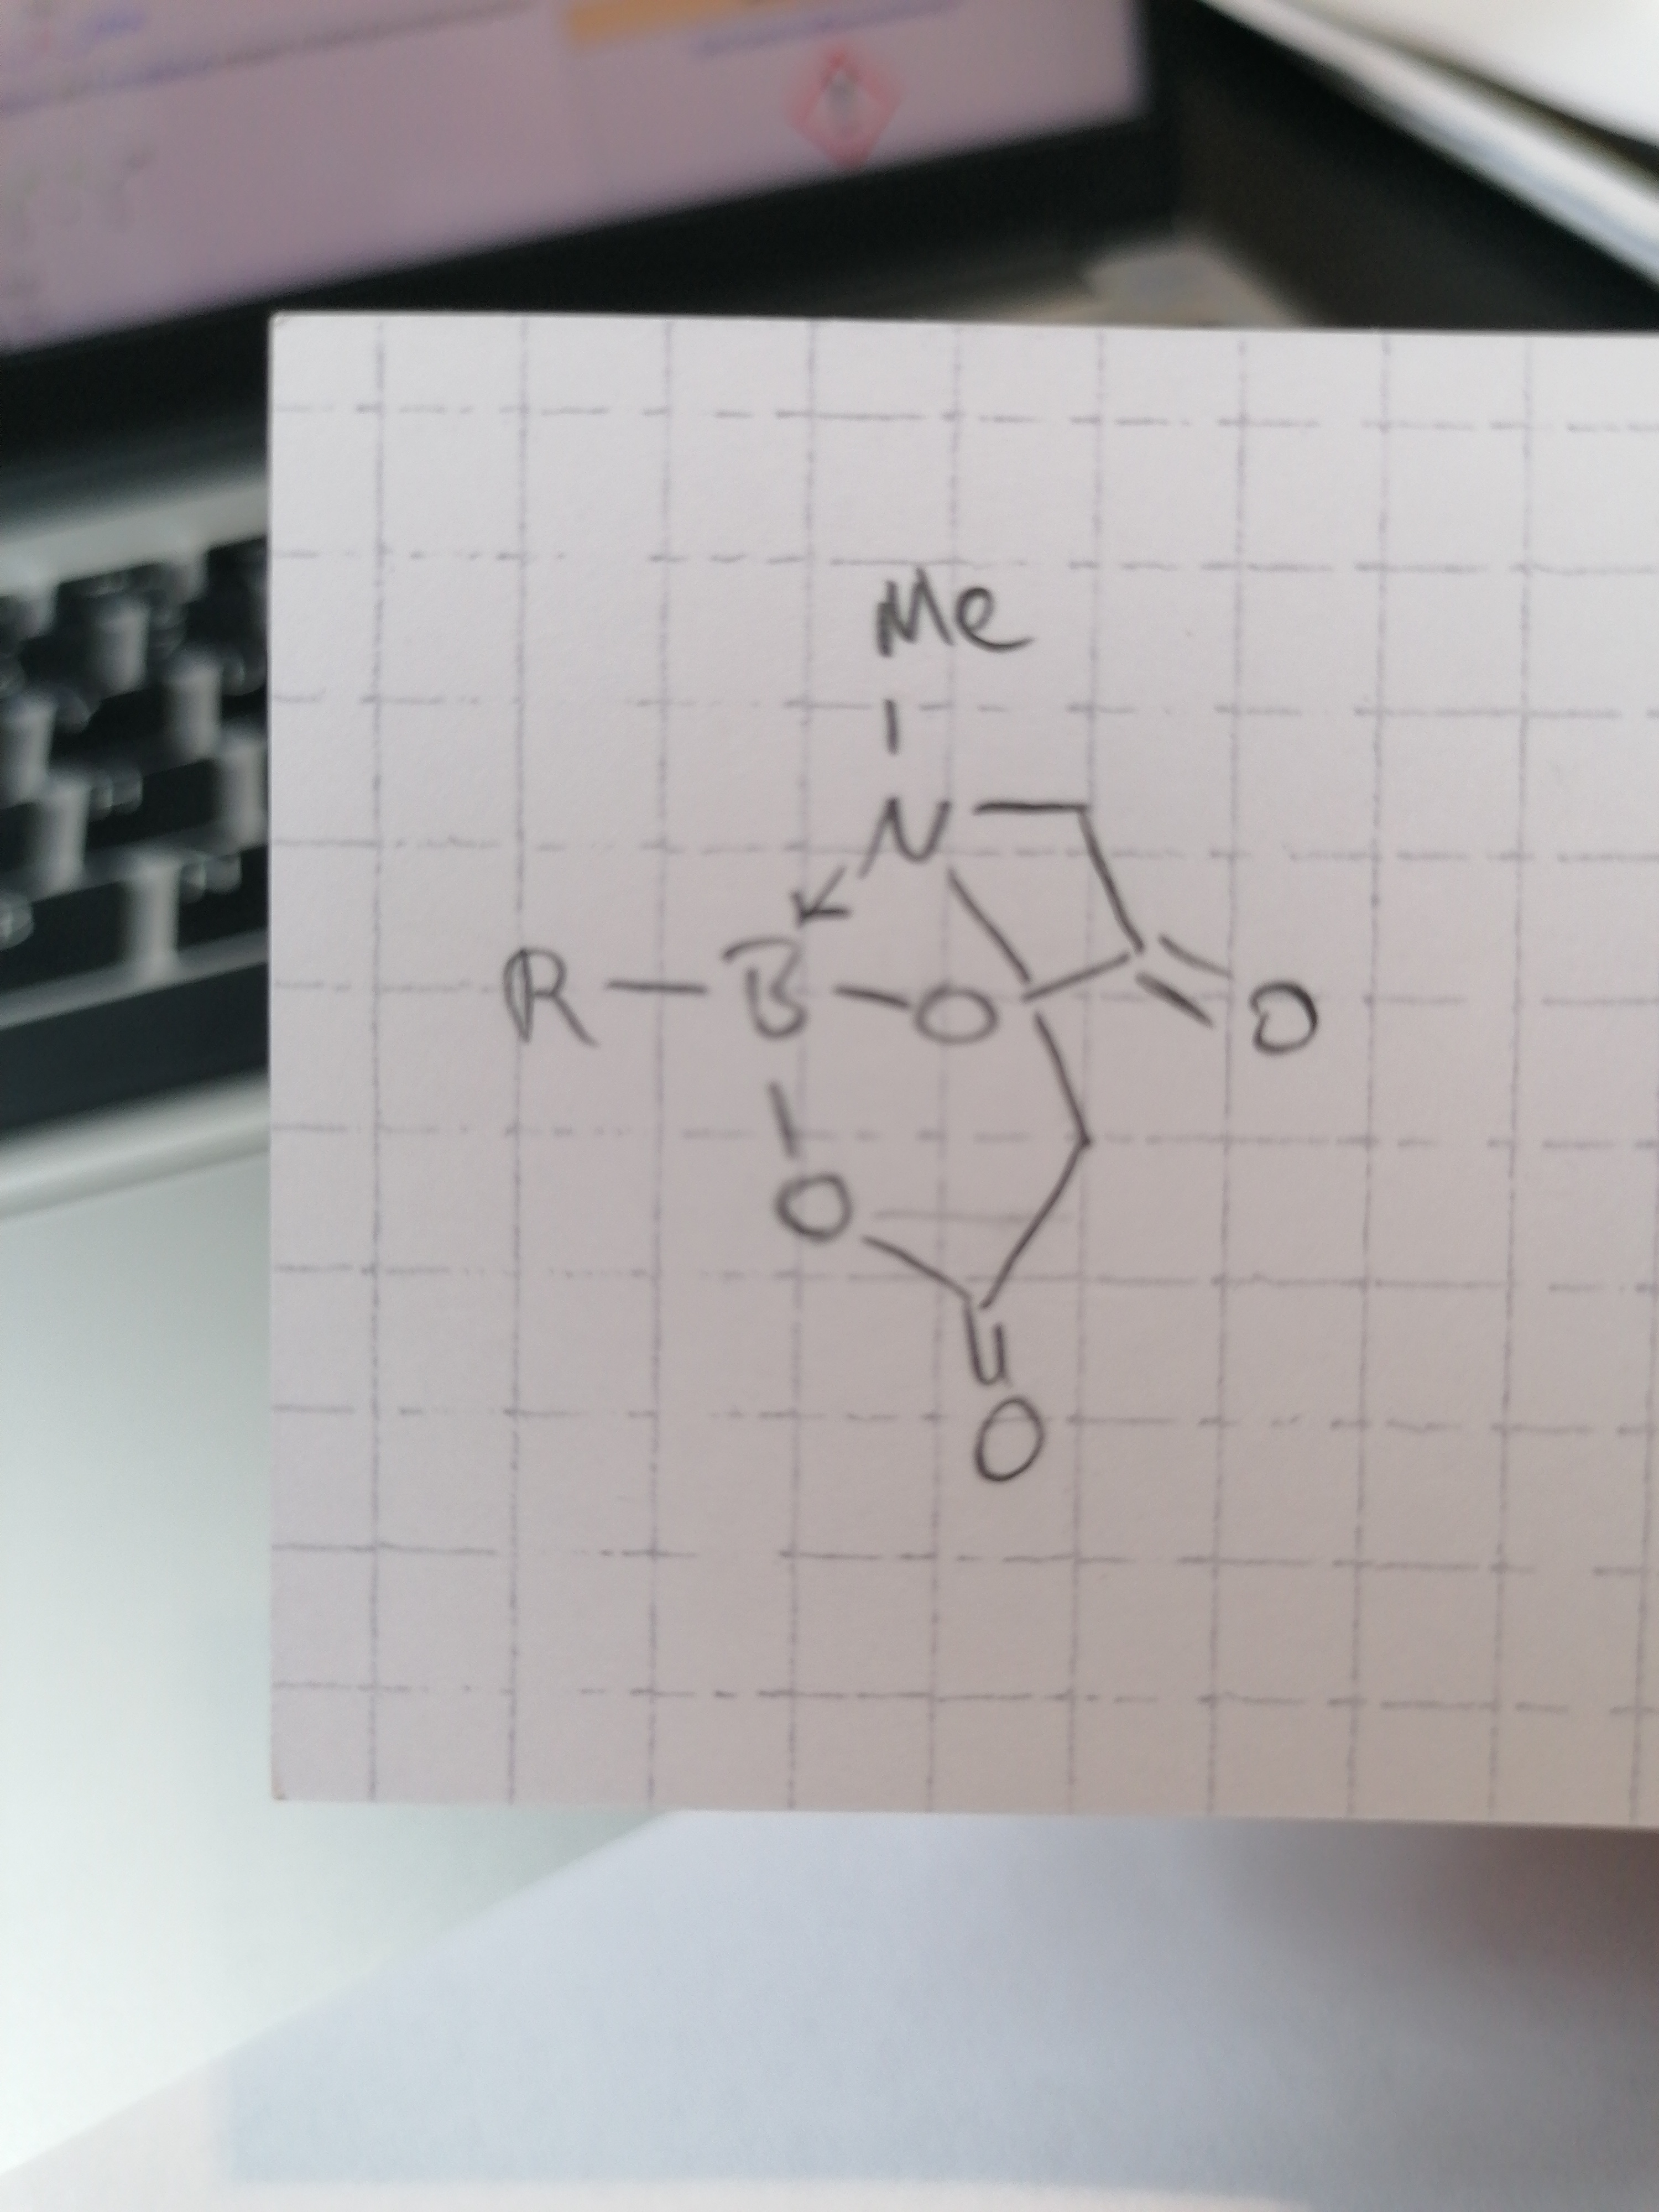 Me
N
R B O O
O
O